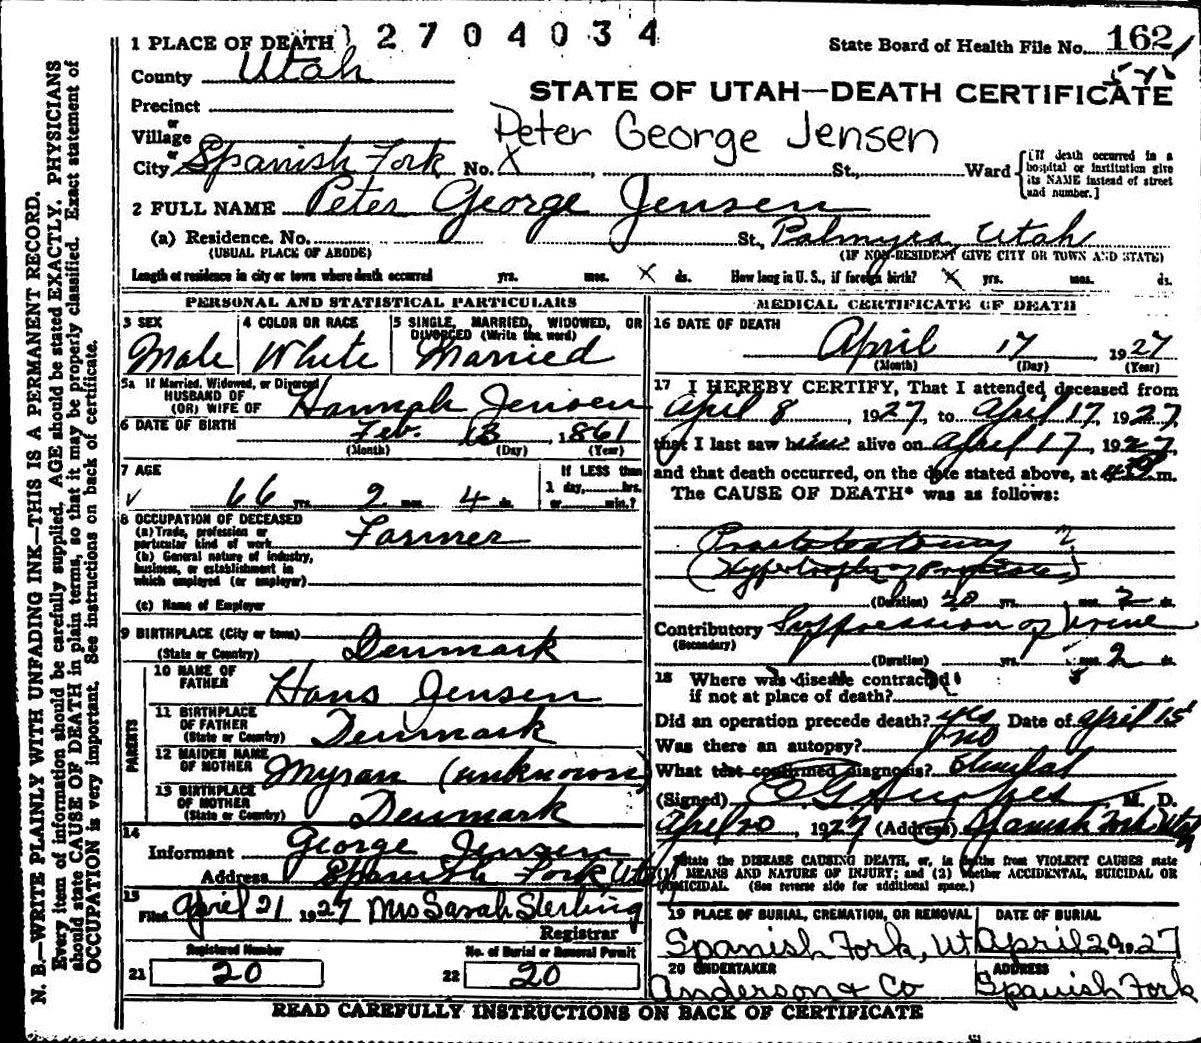 1 PLACE OF DEATH 2704034
State Board of Health File No. 162
County Utah
STATE OF UTAH—DEATH CERTIFICATE
Precinct
or
Village
Peter George Jensen
or
City Spanish Fork No. X St., Ward [If death occurred in a hospital or institution give its NAME instead of street and number.]
2 FULL NAME Peter George Jensen
(a) Residence. No. St., Palmyra, Utah
(USUAL PLACE OF ABODE) (IF NON-RESIDENT GIVE CITY OR TOWN AND STATE)
Length of residence in city or town where death occurred yrs. mos. X ds. How long in U. S., if foreign birth? X yrs. mos. ds.
PERSONAL AND STATISTICAL PARTICULARS
3 SEX
Male
4 COLOR OR RACE
White
5 SINGLE, MARRIED, WIDOWED, OR DIVORCED (Write the word)
Married
5a If Married, Widowed, or Divorced
HUSBAND OF
(OR) WIFE OF Hannah Jensen
6 DATE OF BIRTH Feb. 13, 1861
(Month) (Day) (Year)
7 AGE
66 yrs. 2 mos. 4 ds.
If LESS than
1 day, hrs.
or min.?
8 OCCUPATION OF DECEASED
(a) Trade, profession or
particular kind of work Farmer
(b) General nature of industry,
business, or establishment in
which employed (or employer)
(c) Name of Employer
9 BIRTHPLACE (City or town)
(State or Country) Denmark
PARENTS
10 NAME OF
FATHER Hans Jensen
11 BIRTHPLACE
OF FATHER
(State or Country) Denmark
12 MAIDEN NAME
OF MOTHER Myran (unknown)
13 BIRTHPLACE
OF MOTHER
(State or Country) Denmark
14
Informant George Jensen
Address Spanish Fork, Utah
15
Filed April 21 1927 Mrs Sarah Sterling
Registrar
Registered Number
21 20
No. of Burial or Removal Permit
22 20
MEDICAL CERTIFICATE OF DEATH
16 DATE OF DEATH
April 17 1927
(Month) (Day) (Year)
17 I HEREBY CERTIFY, That I attended deceased from
April 8, 1927, to April 17, 1927,
that I last saw him alive on April 17, 1927,
and that death occurred, on the date stated above, at m.
The CAUSE OF DEATH* was as follows:
(Hypertrophy of Prostate)
(Duration) 20 yrs. mos. 2 ds.
Contributory Suppression of Urine
(Secondary)
(Duration) yrs. mos. 2 ds.
18 Where was disease contracted
if not at place of death?
Did an operation precede death? yes Date of April 15
Was there an autopsy? no
What test confirmed diagnosis?
(Signed) M. D.
April 20, 1927 (Address) Spanish Fork Utah
*State the DISEASE CAUSING DEATH, or, in deaths from VIOLENT CAUSES state
(1) MEANS AND NATURE OF INJURY; and (2) whether ACCIDENTAL, SUICIDAL OR
HOMICIDAL. (See reverse side for additional space.)
19 PLACE OF BURIAL, CREMATION, OR REMOVAL
Spanish Fork, Ut
DATE OF BURIAL
April 20 1927
20 UNDERTAKER
Anderson & Co
ADDRESS
Spanish Fork
READ CAREFULLY INSTRUCTIONS ON BACK OF CERTIFICATE
N. B.—WRITE PLAINLY WITH UNFADING INK—THIS IS A PERMANENT RECORD.
Every item of information should be carefully supplied. AGE should be stated EXACTLY. PHYSICIANS
should state CAUSE OF DEATH in plain terms, so that it may be properly classified. Exact statement of
OCCUPATION is very important. See instructions on back of certificate.